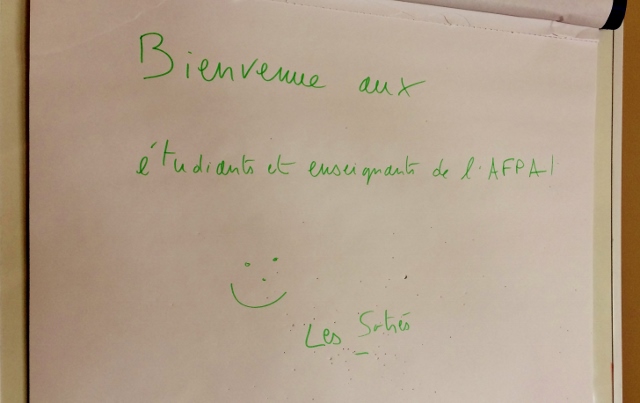 Bienvenue aux
étudiants et enseignants de l'AFPA!
Les